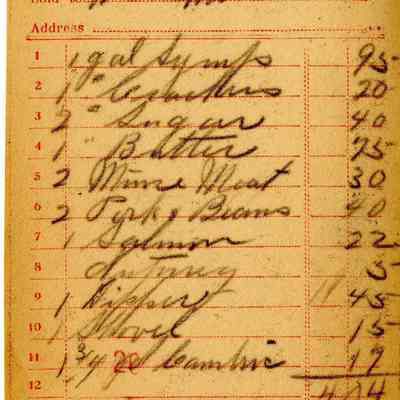 Address
1 1 gal Syrup 95
2 1 " Crackers 20
3 2 " Sugar 40
4 1 " Butter 75
5 2 Minse Meat 30
6 2 Pork & Beans 40
7 1 Salmon 22
8 5
9 1 Dipper 45
10 1 Shovel 15
11 1 3/4 Cambric 17
12 404